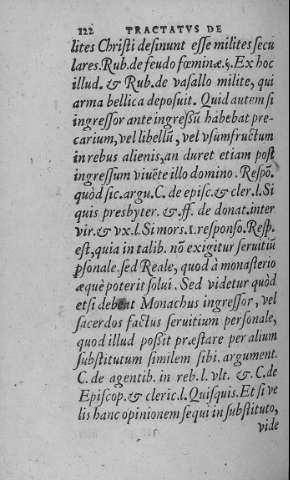 122 TRACTATVS DE
lites Christi desinunt esse milites secu
lares. Rub. de feudo fœminæ. §. Ex hoc
illud. & Rub. de vasallo milite, qui
arma bellica deposuit. Quid autem si
ingressor ante ingressũ habebat pre-
carium, vel libellũ, vel vsumfructum
in rebus alienis, an duret etiam post
ingressum viuẽte illo domino. Respõ.
quòd sic. argu. C. de episc. & cler. l. Si
quis presbyter. & ff. de donat. inter
vir. & vx. l. Si mors. 1. responso. Resp.
est, quia in talib. nõ exigitur seruitiũ
psonale. sed Reale, quod à monasterio
æquè poterit solui. Sed videtur quòd
etsi debeat Monachus ingressor, vel
sacerdos factus seruitium personale,
quod illud possit præstare per alium
substitutum similem sibi. argument.
C. de agentib. in reb. l. vlt. & C. de
Episcop. & cleric. l. Quisquis. Et si ve
lis hanc opinionem sequi in substituto,
vide